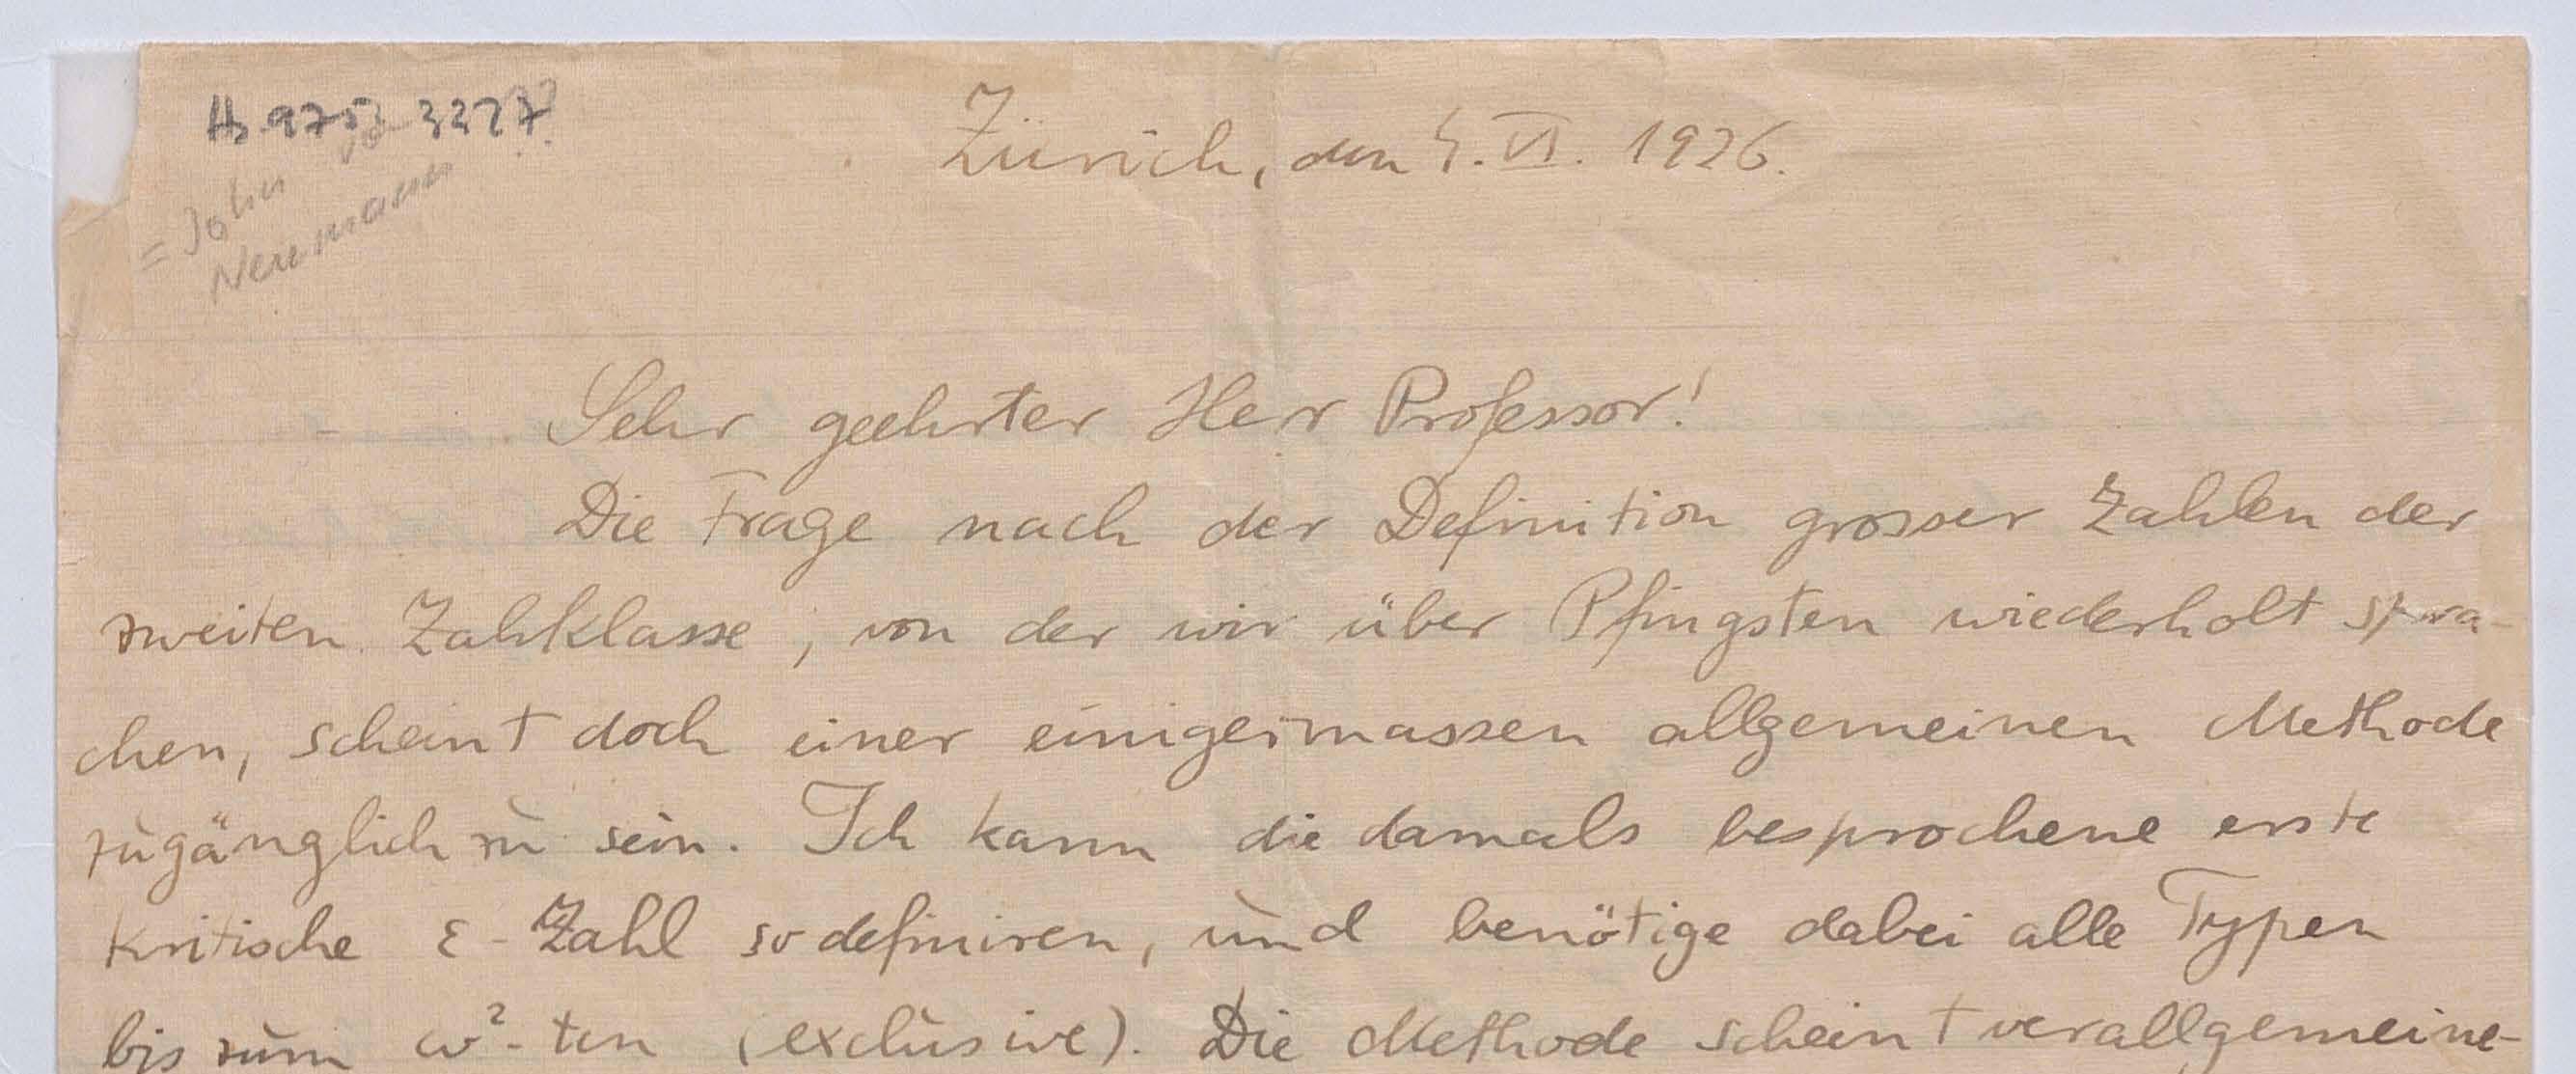 Hs 975: 3227.
= John v.
Neumann
Zürich, den 4. VI. 1926.
Sehr geehrter Herr Professor!
Die Frage nach der Definition grosser Zahlen der
zweiten Zahlklasse, von der wir über Pfingsten wiederholt spra-
chen, scheint doch einer einigermassen allgemeinen Methode
zugänglich zu sein. Ich kann die damals besprochene erste
kritische ε-Zahl so definiren, und benötige dabei alle Typen
bis zum ω²-ten (exclusive). Die Methode scheint verallgemeine-